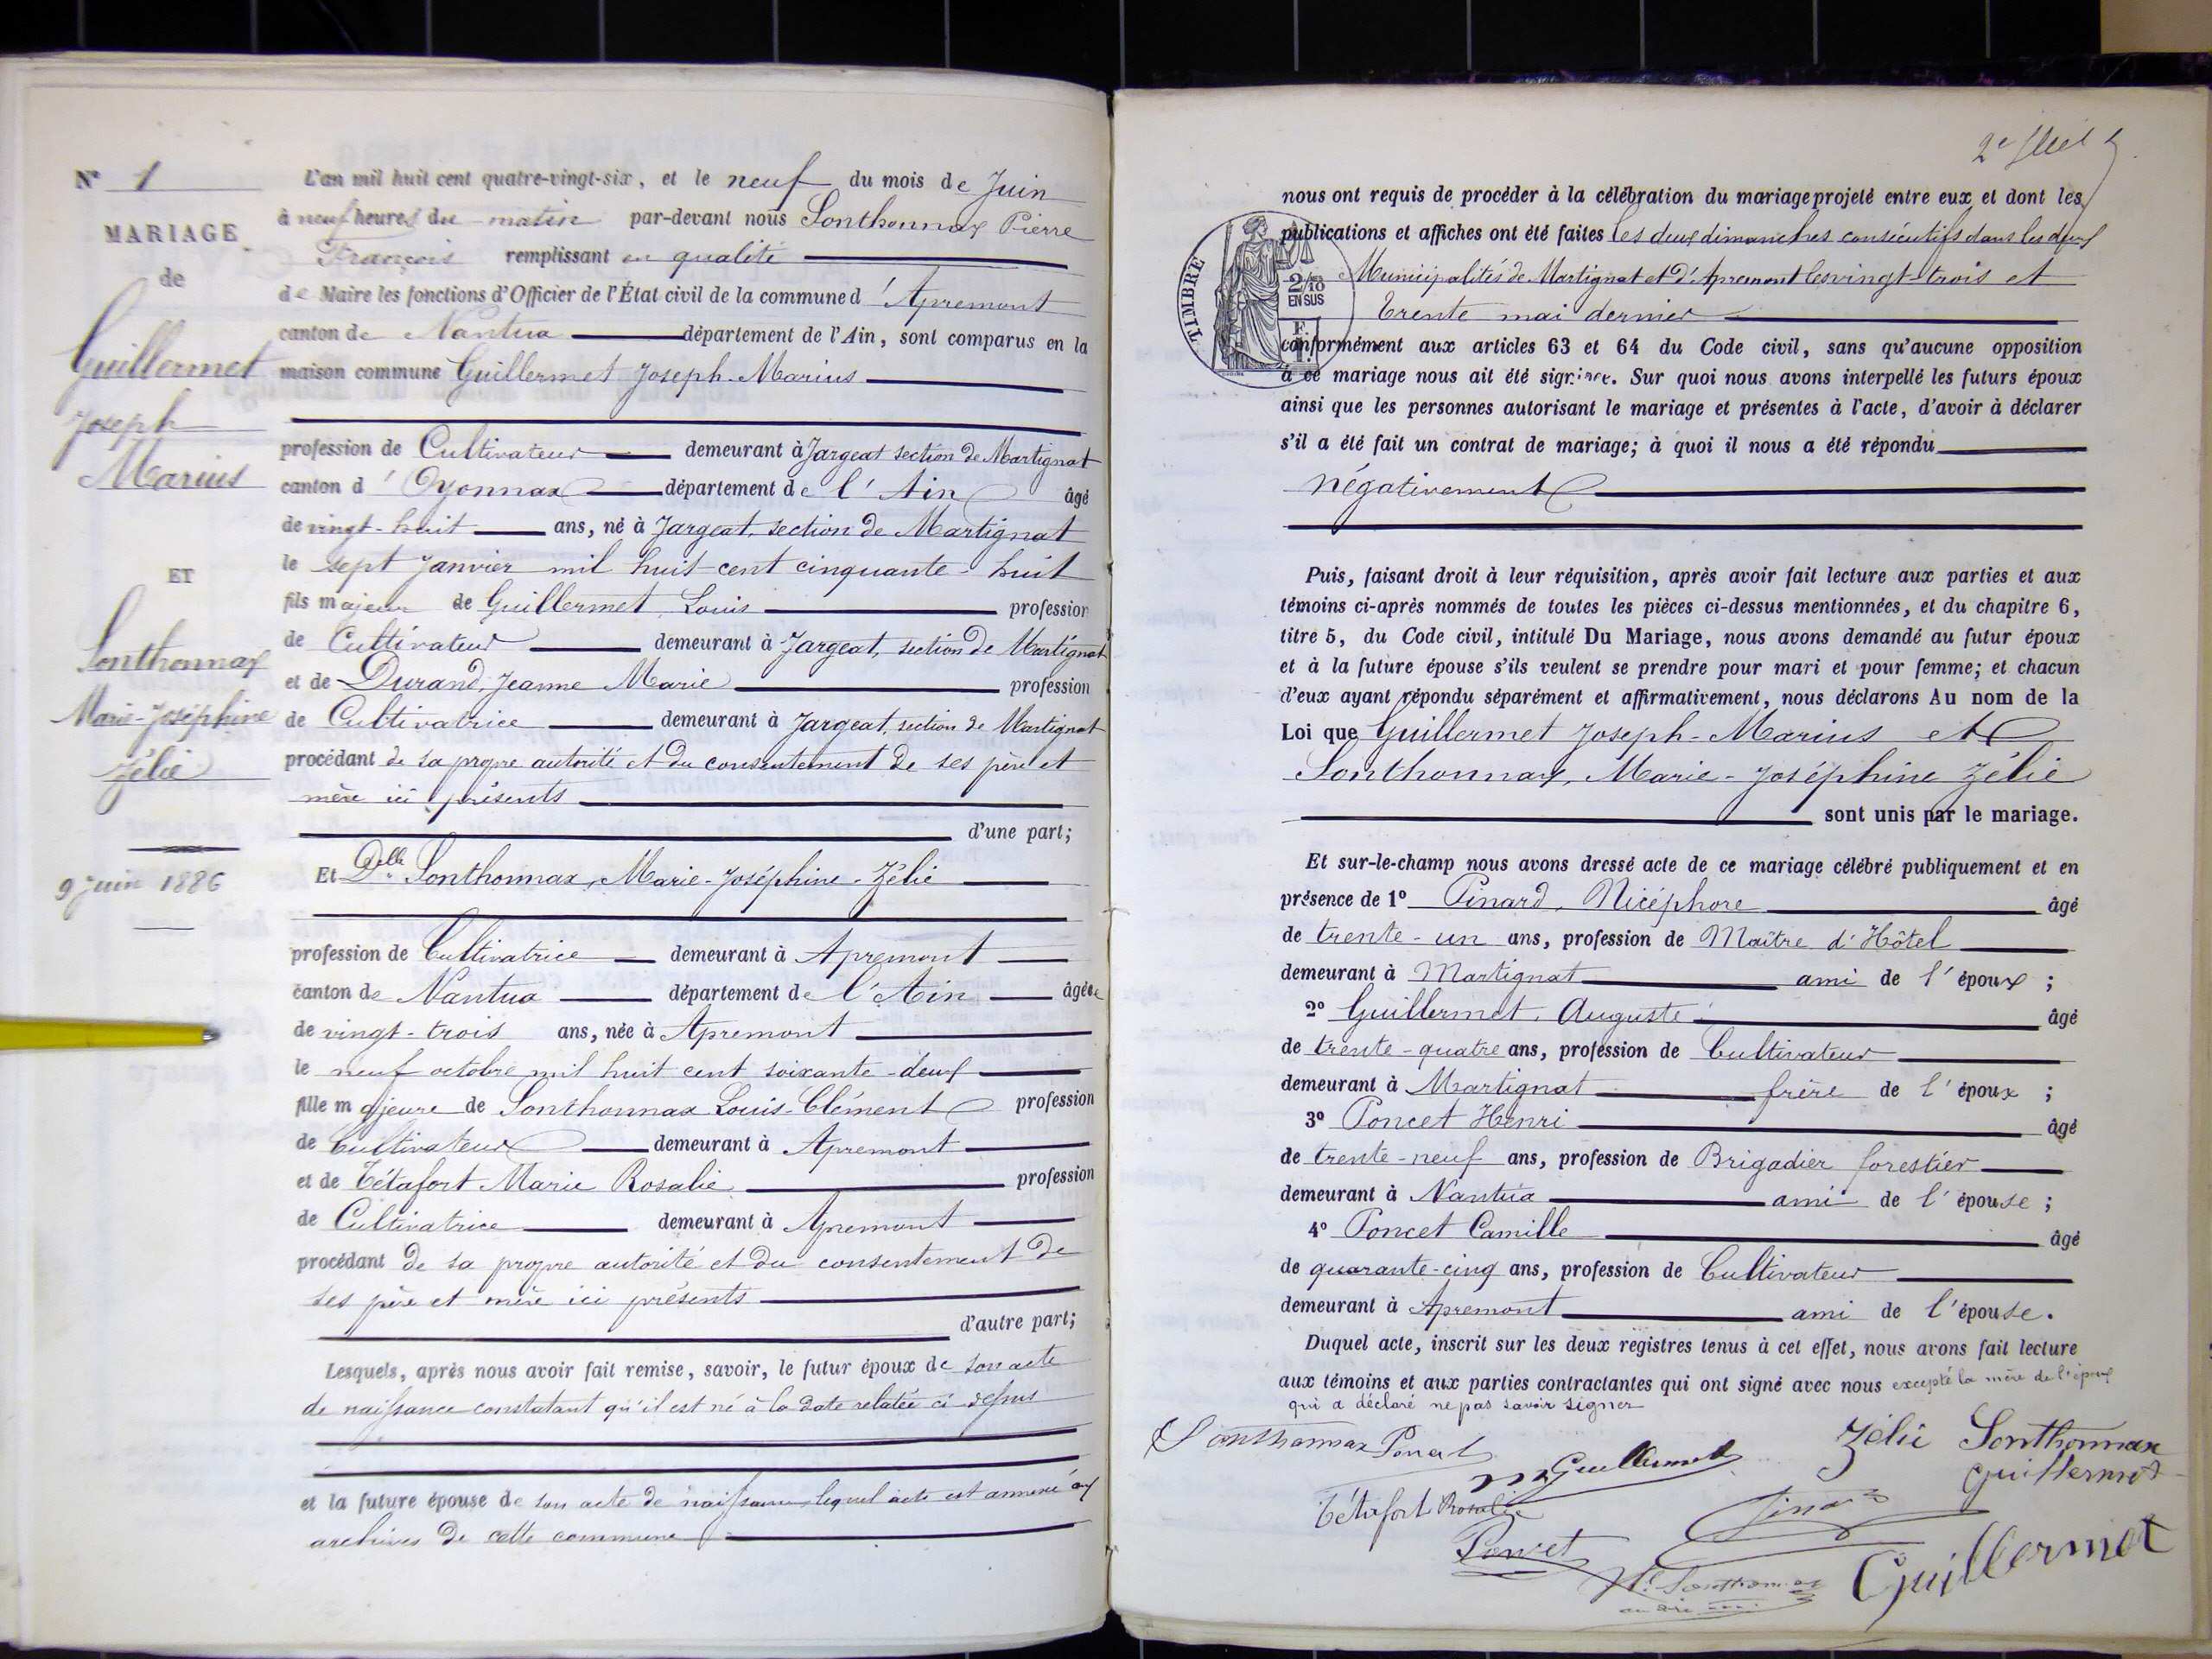 N° 1
MARIAGE
de
Guillermet
Joseph
Marius
ET
Sonthonnax
Marie-Joséphine
Zélie
9 juin 1886
L'an mil huit cent quatre-vingt-six, et le neuf du mois de Juin
à neuf heures du matin par-devant nous Sonthonnax Pierre
François remplissant en qualité
de Maire les fonctions d'Officier de l'État civil de la commune d'Apremont
canton de Nantua département de l'Ain, sont comparus en la
maison commune Guillermet Joseph-Marius
profession de Cultivateur demeurant à Jargeat section de Martignat
canton d'Oyonnax département de l'Ain âgé
de vingt-huit ans, né à Jargeat, section de Martignat
le sept Janvier mil huit-cent cinquante-huit
fils majeur de Guillermet, Louis profession
de Cultivateur demeurant à Jargeat, section de Martignat
et de Durand, Jeanne Marie profession
de Cultivatrice demeurant à Jargeat, section de Martignat
procédant de sa propre autorité et du consentement de ses père et
mère ici présents
d'une part;
Et Delle Sonthonnax, Marie-Joséphine-Zélie
profession de Cultivatrice demeurant à Apremont
canton de Nantua département de l'Ain âgée
de vingt-trois ans, née à Apremont
le neuf octobre mil huit cent soixante-deux
fille majeure de Sonthonnax Louis-Clément profession
de Cultivateur demeurant à Apremont
et de Tétafort Marie Rosalie profession
de Cultivatrice demeurant à Apremont
procédant de sa propre autorité et du consentement de
ses père et mère ici présents
d'autre part;
Lesquels, après nous avoir fait remise, savoir, le futur époux de son acte
de naissance constatant qu'il est né à la date relatée ci-dessus
et la future épouse de son acte de naissance lequel acte est annexé aux
archives de cette commune
nous ont requis de procéder à la célébration du mariage projeté entre eux et dont les
publications et affiches ont été faites les deux dimanches consécutifs dans les deux
Municipalités de Martignat et d'Apremont les vingt-trois et
trente mai dernier
TIMBRE
2/10
EN SUS
conformément aux articles 63 et 64 du Code civil, sans qu'aucune opposition
à ce mariage nous ait été signifiée. Sur quoi nous avons interpellé les futurs époux
ainsi que les personnes autorisant le mariage et présentes à l'acte, d'avoir à déclarer
s'il a été fait un contrat de mariage; à quoi il nous a été répondu
négativement
Puis, faisant droit à leur réquisition, après avoir fait lecture aux parties et aux
témoins ci-après nommés de toutes les pièces ci-dessus mentionnées, et du chapitre 6,
titre 5, du Code civil, intitulé Du Mariage, nous avons demandé au futur époux
et à la future épouse s'ils veulent se prendre pour mari et pour femme; et chacun
d'eux ayant répondu séparément et affirmativement, nous déclarons Au nom de la
Loi que Guillermet Joseph-Marius et
Sonthonnax, Marie-Joséphine Zélie
sont unis par le mariage.
Et sur-le-champ nous avons dressé acte de ce mariage célébré publiquement et en
présence de 1° Pinard, Nicéphore âgé
de trente-un ans, profession de Maître d'Hôtel
demeurant à Martignat ami de l'époux ;
2° Guillermet, Auguste âgé
de trente-quatre ans, profession de Cultivateur
demeurant à Martignat frère de l'époux ;
3° Poncet Henri âgé
de trente-neuf ans, profession de Brigadier forestier
demeurant à Nantua ami de l'épouse ;
4° Poncet Camille âgé
de quarante-cinq ans, profession de Cultivateur
demeurant à Apremont ami de l'épouse.
Duquel acte, inscrit sur les deux registres tenus à cet effet, nous avons fait lecture
aux témoins et aux parties contractantes qui ont signé avec nous excepté la mère de l'époux
qui a déclaré ne pas savoir signer
Sonthonnax Poncet
Guillermet
Zélie Sonthonnax
Guillermet
Tétafort Rosalie
Pinard
Poncet
Sonthonnax
Guillermet